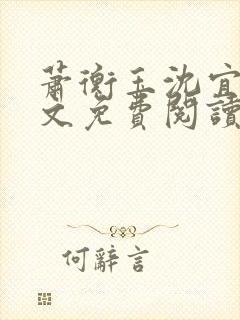 蕭衡玉沈宜
文免費閱讀
何辭言